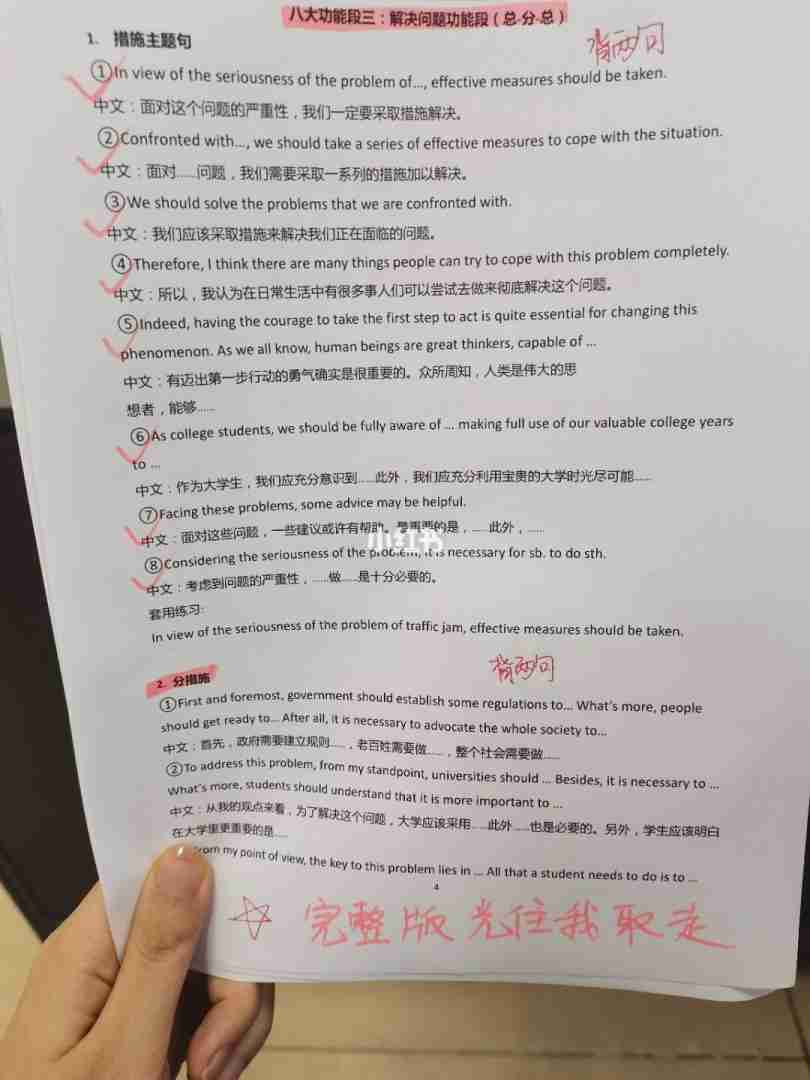 八大功能段三：解决问题功能段（总-分-总）
背两句
1. 措施主题句
①In view of the seriousness of the problem of..., effective measures should be taken.
中文：面对这个问题的严重性，我们一定要采取措施解决。
②Confronted with..., we should take a series of effective measures to cope with the situation.
中文：面对......问题，我们需要采取一系列的措施加以解决。
③We should solve the problems that we are confronted with.
中文：我们应该采取措施来解决我们正在面临的问题。
④Therefore, I think there are many things people can try to cope with this problem completely.
中文：所以，我认为在日常生活中有很多事人们可以尝试去做来彻底解决这个问题。
⑤Indeed, having the courage to take the first step to act is quite essential for changing this
phenomenon. As we all know, human beings are great thinkers, capable of ...
中文：有迈出第一步行动的勇气确实是很重要的。众所周知，人类是伟大的思
想者，能够......
⑥As college students, we should be fully aware of ... making full use of our valuable college years
to ...
中文：作为大学生，我们应充分意识到......此外，我们应充分利用宝贵的大学时光尽可能......
⑦Facing these problems, some advice may be helpful.
中文：面对这些问题，一些建议或许有帮助。最重要的是，......此外，......
小红书
⑧Considering the seriousness of the problem, it is necessary for sb. to do sth.
中文：考虑到问题的严重性，......做......是十分必要的。
套用练习:
In view of the seriousness of the problem of traffic jam, effective measures should be taken.
背两句
2. 分措施
①First and foremost, government should establish some regulations to... What's more, people
should get ready to... After all, it is necessary to advocate the whole society to...
中文：首先，政府需要建立规则......，老百姓需要做......，整个社会需要做......
②To address this problem, from my standpoint, universities should ... Besides, it is necessary to ...
What's more, students should understand that it is more important to ...
中文：从我的观点来看，为了解决这个问题，大学应该采用......此外......也是必要的。另外，学生应该明白
在大学里更重要的是......
From my point of view, the key to this problem lies in ... All that a student needs to do is to ...
4
完整版 关住我取走